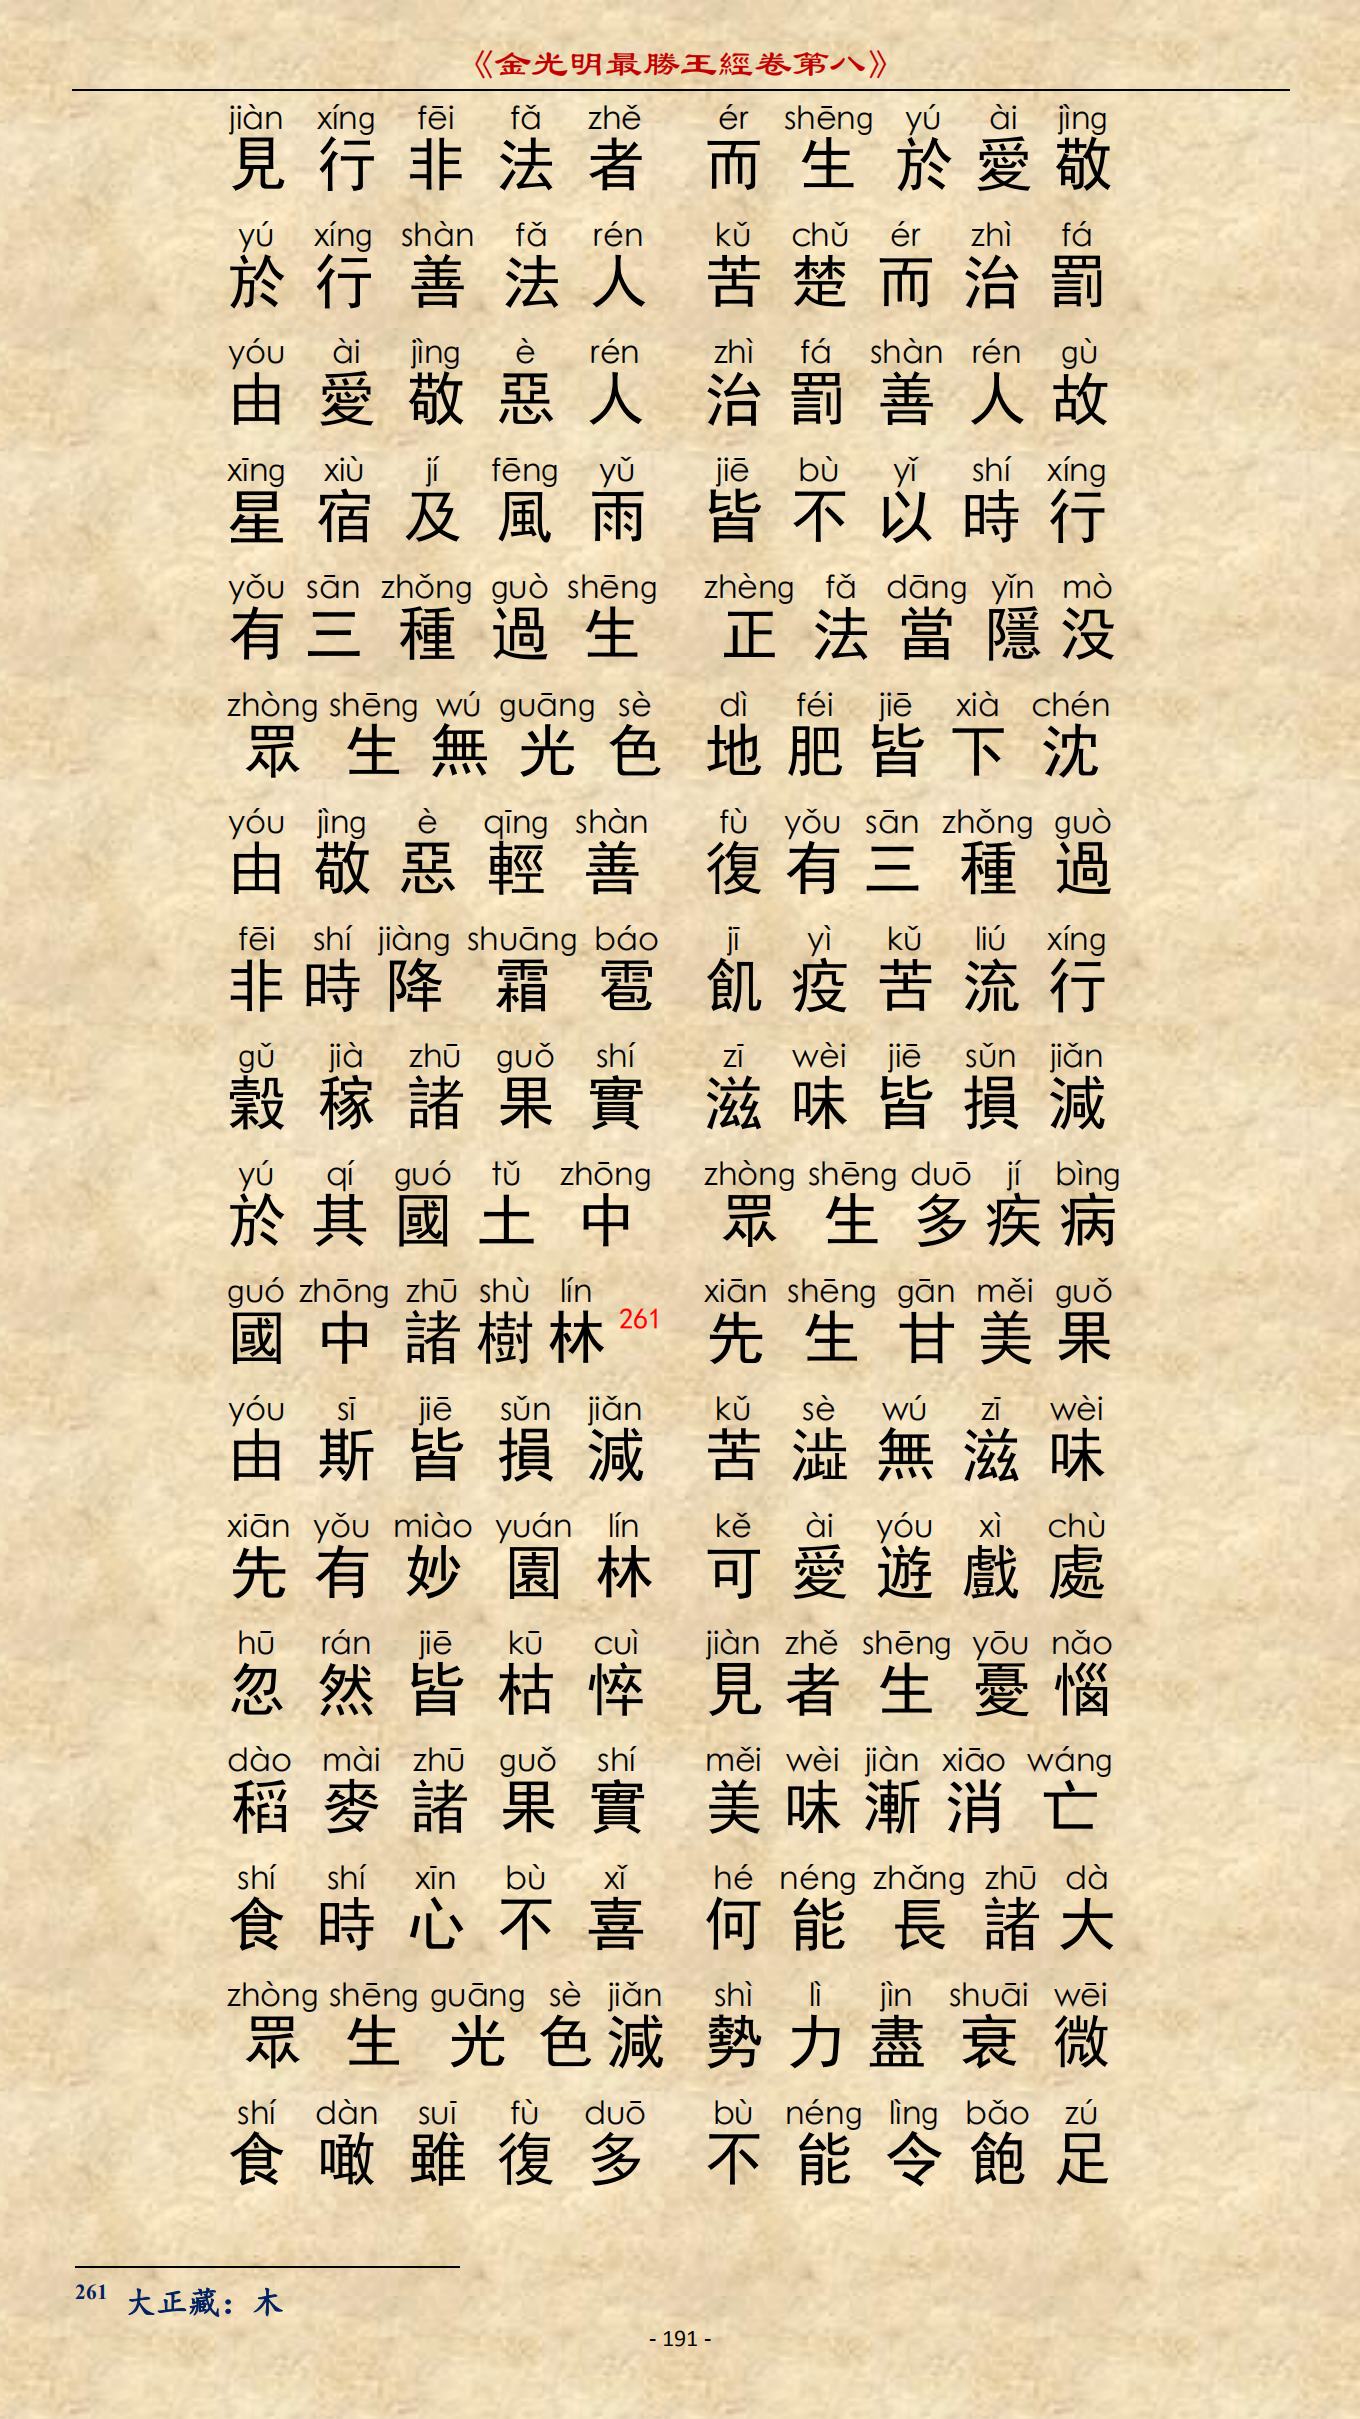 《金光明最勝王經卷第八》
jiàn xíng fēi fǎ zhě ér shēng yú ài jìng
見行非法者 而生於愛敬
yú xíng shàn fǎ rén kǔ chǔ ér zhì fá
於行善法人 苦楚而治罰
yóu ài jìng è rén zhì fá shàn rén gù
由愛敬惡人 治罰善人故
xīng xiù jí fēng yǔ jiē bù yǐ shí xíng
星宿及風雨 皆不以時行
yǒu sān zhǒng guò shēng zhèng fǎ dāng yǐn mò
有三種過生 正法當隱没
zhòng shēng wú guāng sè dì féi jiē xià chén
眾生無光色 地肥皆下沈
yóu jìng è qīng shàn fù yǒu sān zhǒng guò
由敬惡輕善 復有三種過
fēi shí jiàng shuāng báo jī yì kǔ liú xíng
非時降霜雹 飢疫苦流行
gǔ jià zhū guǒ shí zī wèi jiē sǔn jiǎn
穀稼諸果實 滋味皆損減
yú qí guó tǔ zhōng zhòng shēng duō jí bìng
於其國土中 眾生多疾病
guó zhōng zhū shù lín xiān shēng gān měi guǒ
國中諸樹林261 先生甘美果
yóu sī jiē sǔn jiǎn kǔ sè wú zī wèi
由斯皆損減 苦澁無滋味
xiān yǒu miào yuán lín kě ài yóu xì chù
先有妙園林 可愛遊戲處
hū rán jiē kū cuì jiàn zhě shēng yōu nǎo
忽然皆枯悴 見者生憂惱
dào mài zhū guǒ shí měi wèi jiàn xiāo wáng
稻麥諸果實 美味漸消亡
shí shí xīn bù xǐ hé néng zhǎng zhū dà
食時心不喜 何能長諸大
zhòng shēng guāng sè jiǎn shì lì jìn shuāi wēi
眾生光色減 勢力盡衰微
shí dàn suī fù duō bù néng lìng bǎo zú
食噉雖復多 不能令飽足
261 大正藏：木
- 191 -